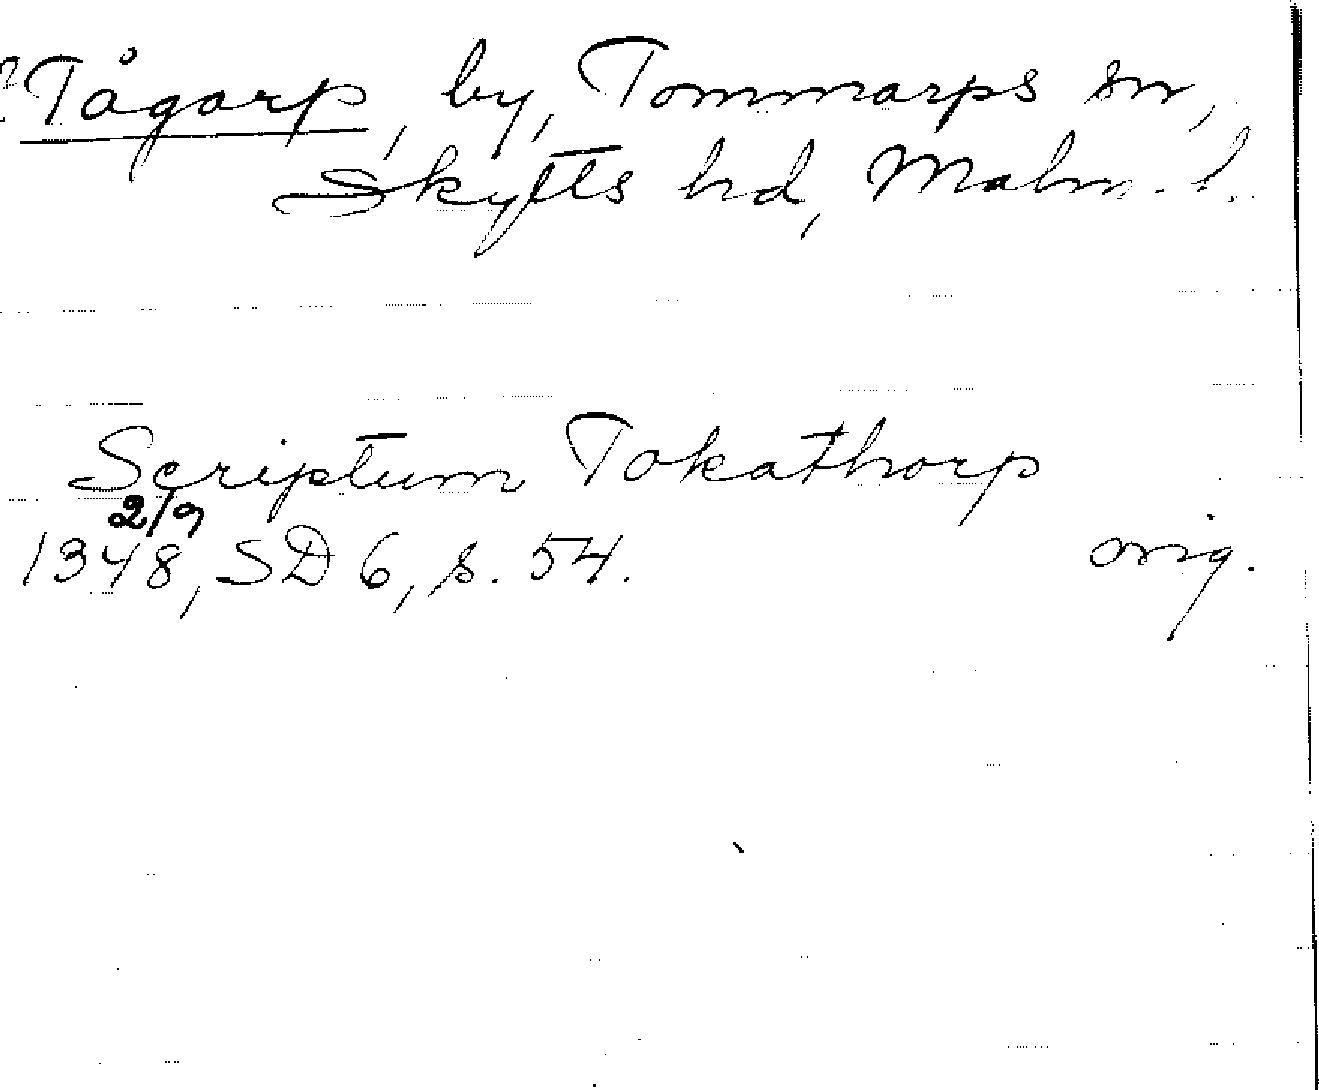 ? Tågarp, by, Tommarps sn,
Skytts hd, Malm. l.
Scriptum Tokathorp
2/9
1348, SD 6, s. 54. orig.